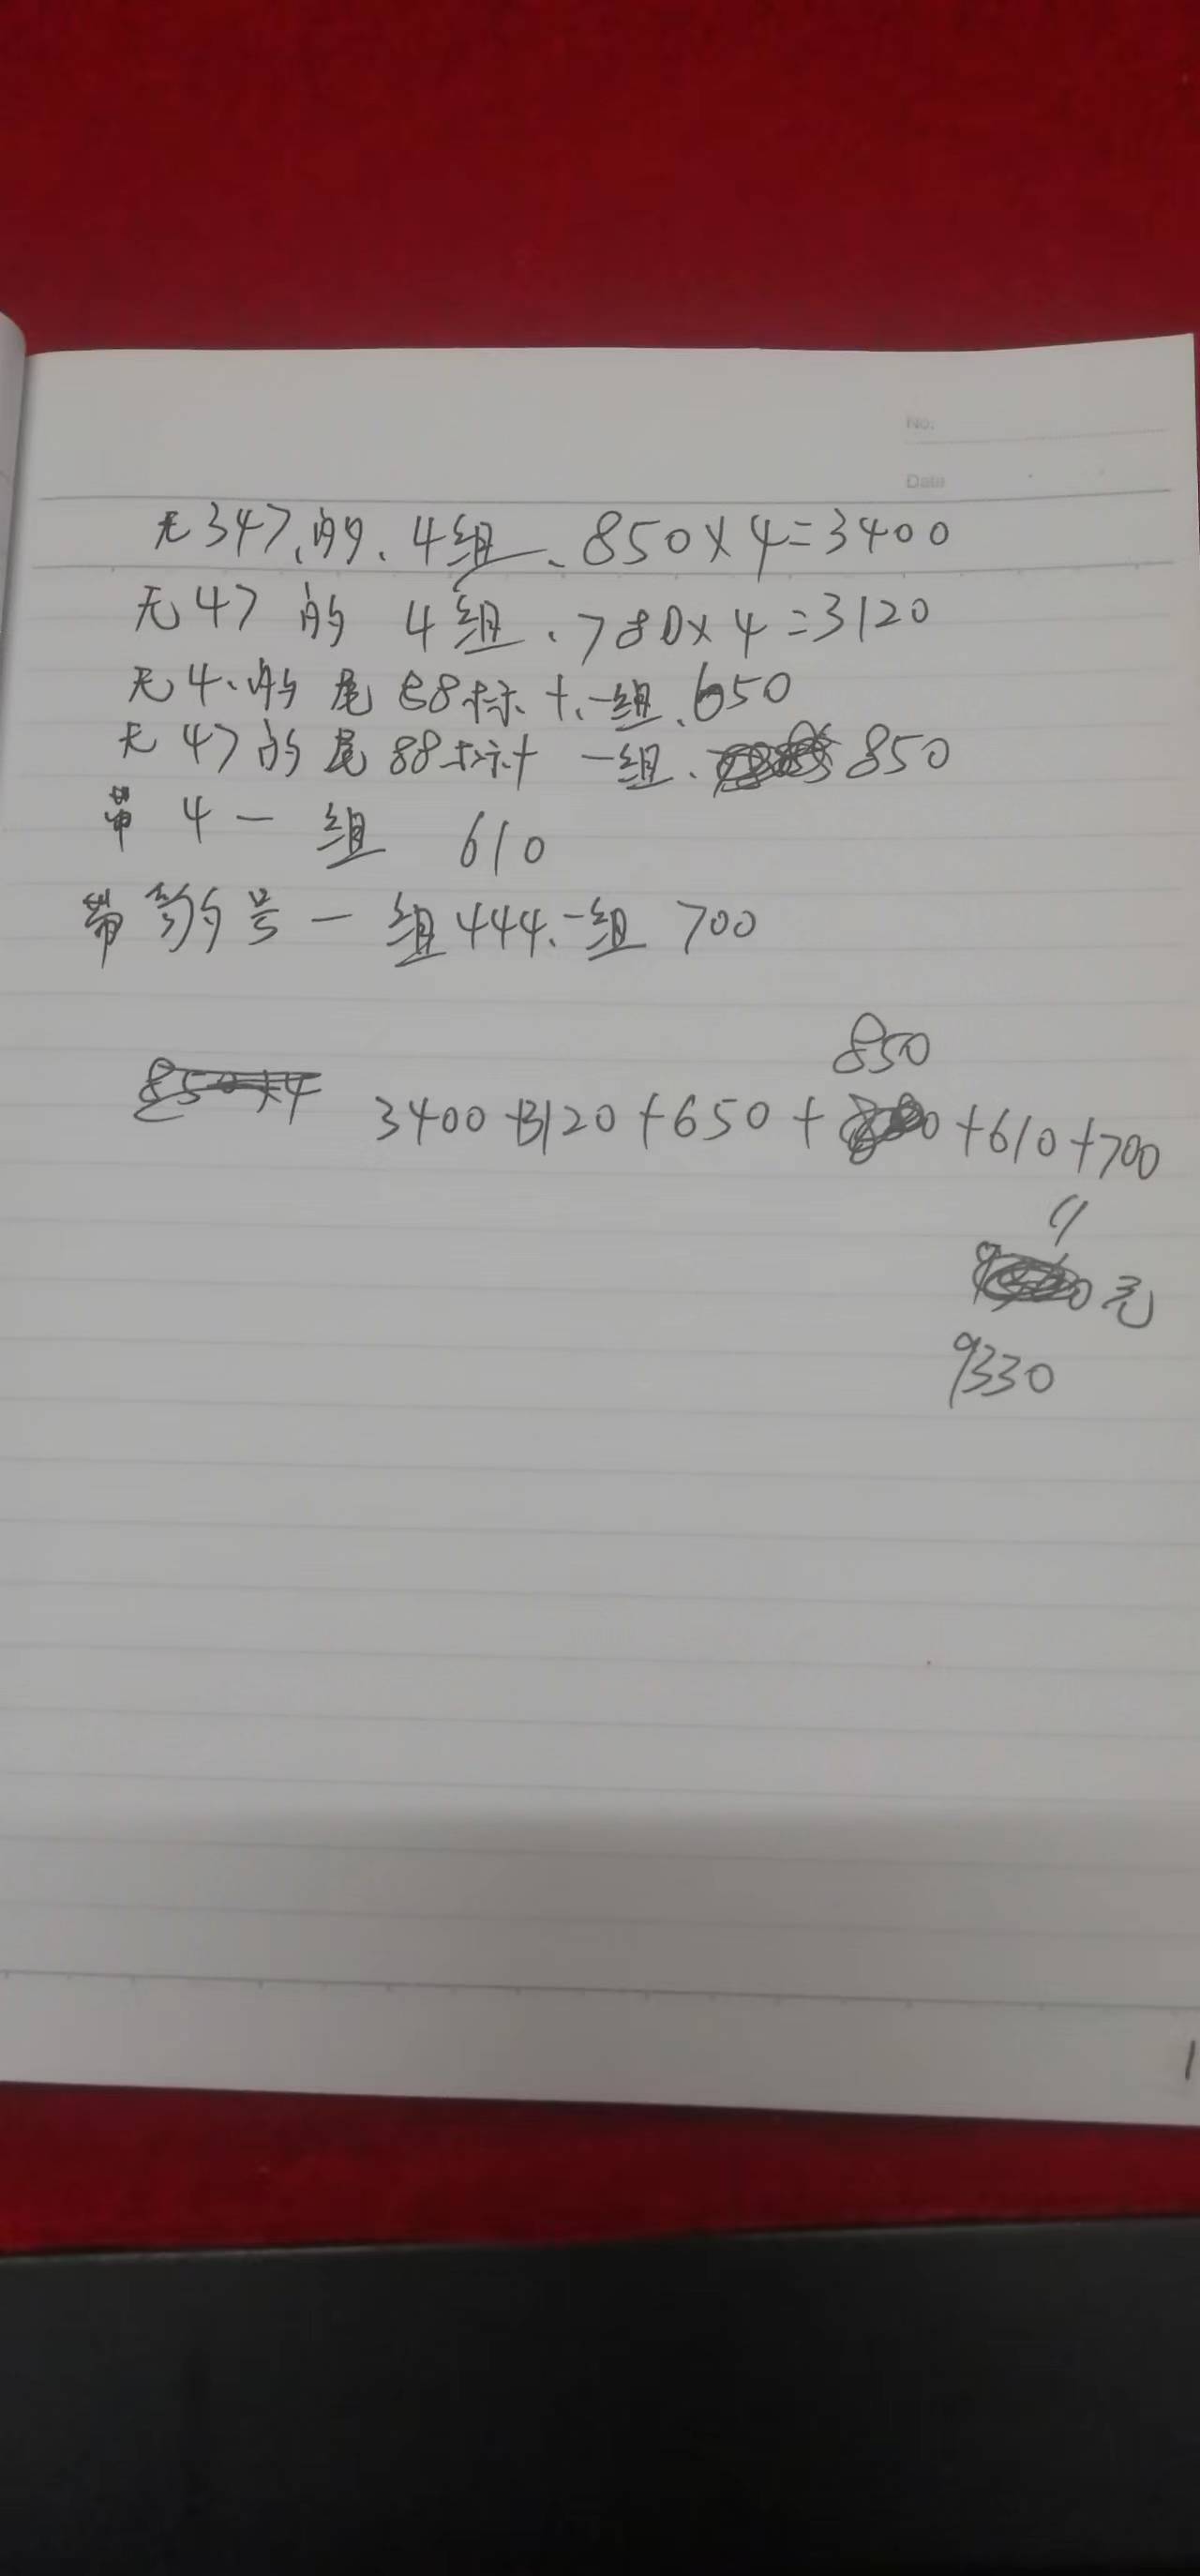 No.
Data
无347、的、4组、850×4=3400
无47的 4组、780×4=3120
无4、的尾88标十、一组、650
无47的尾88标十 一组、850
带4一组 610
带豹号一组444、一组 700
850×4
850
3400+3120+650+ +610+700
元
9330